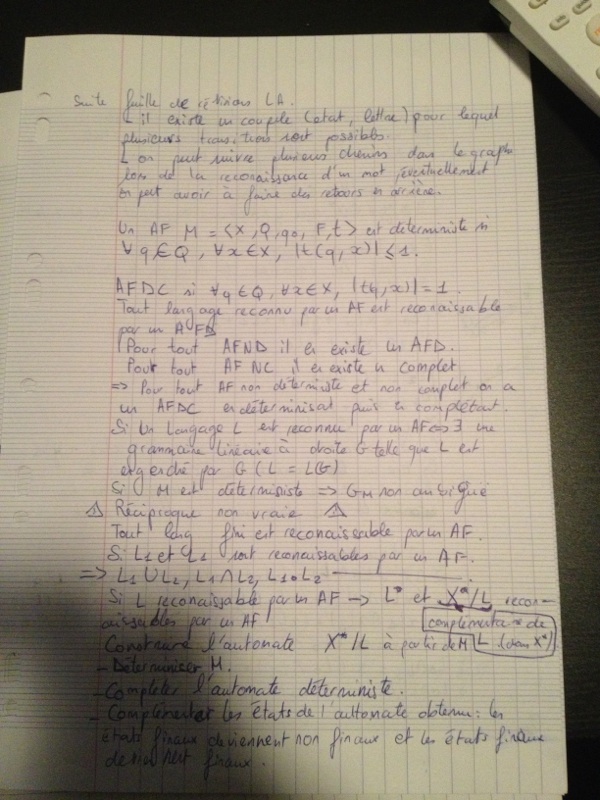 Suite feuille de révisions LA.
L il existe un couple (état, lettre) pour lequel
plusieurs transitions sont possibles.
L on peut suivre plusieurs chemins dans le graphe
lors de la reconaissance d'un mot, éventuellement
on peut avoir à faire des retours en arrière.
Un AF M = <X, Q, q0, F, t> est déterministe si
∀ q ∈ Q, ∀x ∈ X, |t(q, x)| ≤ 1.
AFDC si ∀q ∈ Q, ∀x ∈ X, |t(q, x)| = 1.
Tout langage reconnu par un AF est reconaissable
par un AFD
Pour tout AFND il en existe un AFD.
Pour tout AF NC il en existe un complet
=> Pour tout AF non déterministe et non complet on a
un AFDC en déterminisat puis en complétant.
Si Un langage L est reconnu par un AF <=> ∃ une
grammaire linéaire à droite G telle que L est
engendré par G (L = L(G)
Si M est déterministe => GM non ambiguë
⚠ Réciproque non vraie ⚠
Tout lang fini est reconaissable par un AF.
Si L1 et L2 sont reconaissables par un AF.
=> L1 ∪ L2, L1 ∩ L2, L1 • L2
Si L reconaissable par un AF → L* et X*/L recon-
aissables par un AF
complémentaire de
L (dans X*)
Construire l'automate X*/L à partir de M
- Déterminiser M.
- Completer l'automate déterministe.
- Complémenter les états de l'automate obtenu : les
états finaux deviennent non finaux et les états finaux
deviennent finaux.